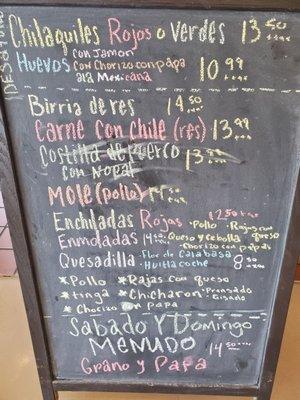 DESAYUNO
Chilaquiles Rojos o Verdes 13.50
Huevos con Jamon
con Chorizo con papa
ala Mexicana 10.99
Birria de res 14.50
Carne con chile (res) 13.99
Costilla de puerco
con Nopal 13.99
Mole (pollo) 14.50
Enchiladas Rojas 12.50 · Pollo · Rajas con queso
Enmoladas 14.50 · Queso y cebolla · Chorizo con papas
Quesadilla · Flor de Calabasa
· Huitlacoche 8.50
*Pollo *Rajas con queso
*tinga *Chicharon · Prensado
· Guisado
* Chorizo con papa
Sabado Y Domingo
MENUDO 14.50
Grano y Papa